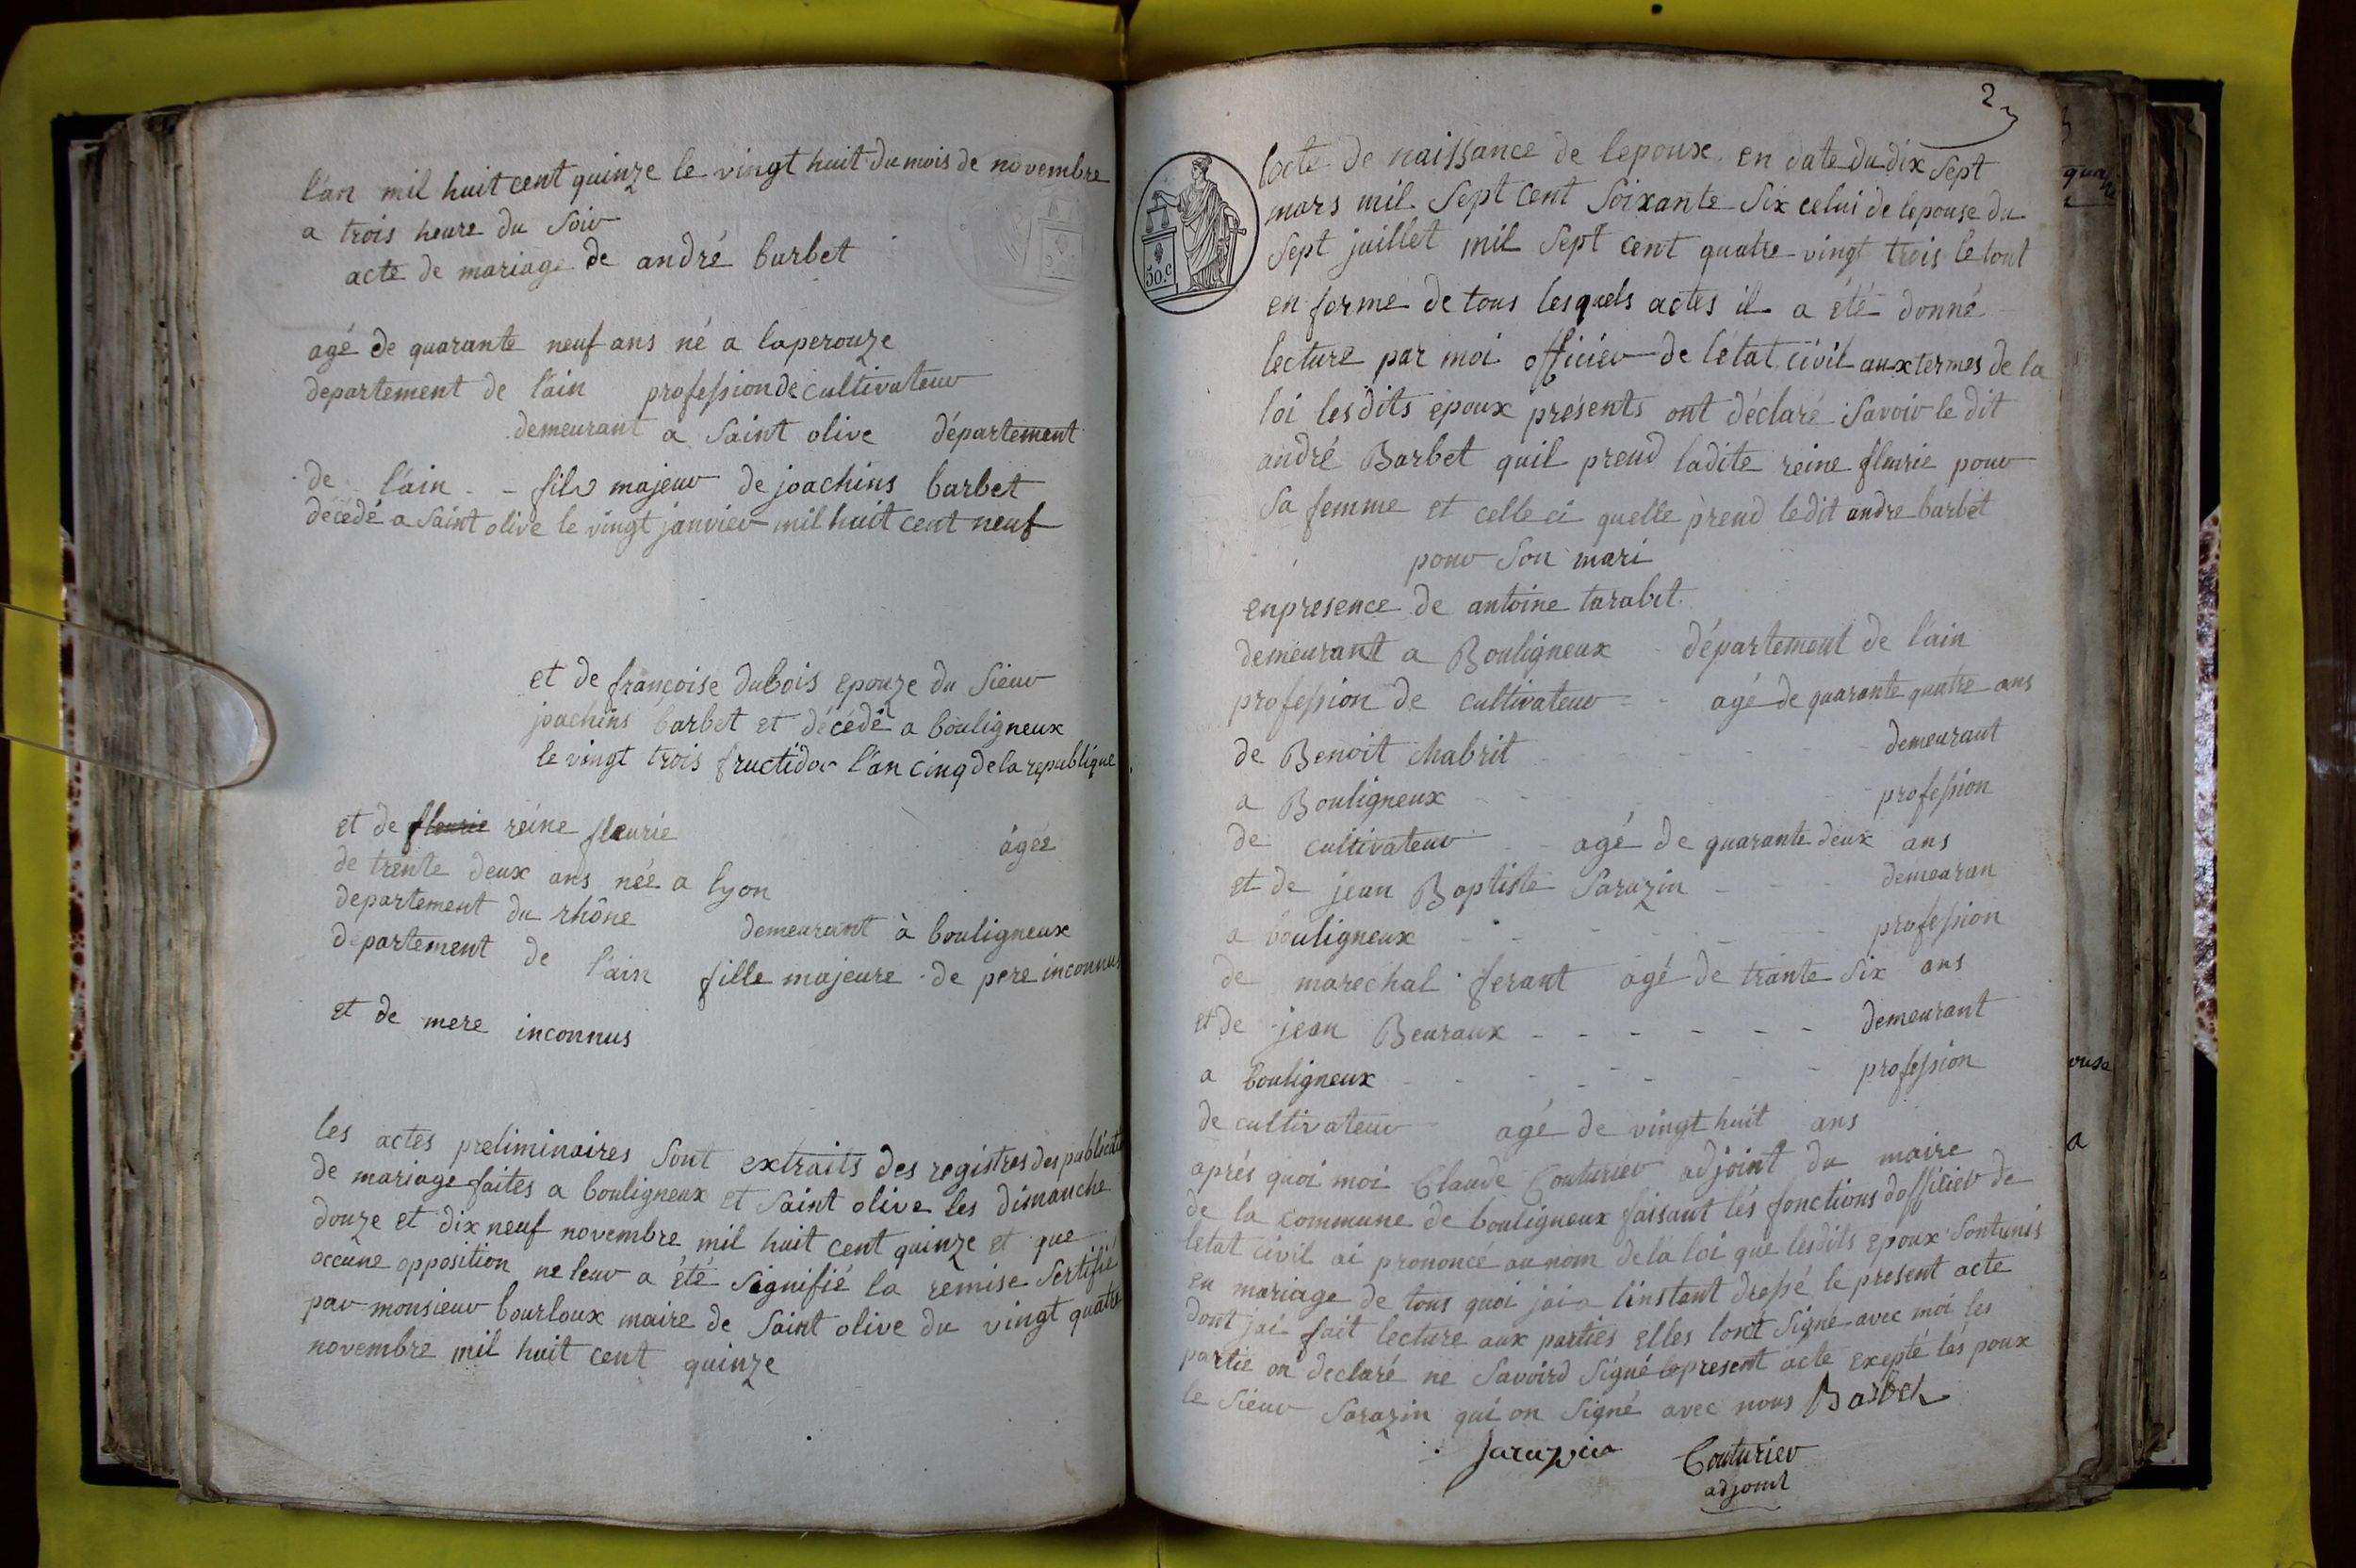 l'an mil huit cent quinze le vingt huit du mois de novembre
a trois heure du Soir
acte de mariage de andré barbet
agé de quarante neuf ans né a laperouze
departement de l'ain profession de cultivateur
demeurant a Saint olive département
de l'ain - - fils majeur de joachins barbet
décédé a Saint olive le vingt janvier mil huit cent neuf
et de françoise dubois epouze du Sieur
joachins barbet et décédé a bouligneux
le vingt trois fructidor l'an cinq de la republique
et de fleurie reine fleurie agée
de trente deux ans née a lyon
departement du rhône demeurant à bouligneux
departement de l'ain fille majeure de pere inconnus
et de mere inconnus
les actes preliminaires Sont extraits des registres des publicati
de mariage faites a bouligneux et Saint olive les dimanche
douze et dix neuf novembre mil huit cent quinze et que
occune opposition ne leur a été Signifié la remise Sertifié
par monsieur bourloux maire de Saint olive du vingt quatre
novembre mil huit cent quinze
2
lacte de naissance de lepoux en date du dix Sept
mars mil Sept cent Soixante Six celui de lepouse du
Sept juillet mil Sept cent quatre vingt trois le tout
en forme de tous lesquels actes il a été donné
lecture par moi officier de létat civil aux termes de la
loi les dits époux présents ont déclaré Savoir le dit
andré Barbet quil prend ladite reine fleurie pour
Sa femme et celle ci quelle prend ledit andre barbet
pour Son mari
enpresence de antoine tarabet
demeurant a Bouligneux département de l'ain
profession de cultivateur - - agé de quarante quatre ans
de Benoit Chabrit demeurant
a Bouligneux profession
de cultivateur - - agé de quarante deux ans
et de jean Baptiste Sarazin demeuran
a bouligneux profession
de marechal ferant agé de trante Six ans
et de jean Beuraux demeurant
a bouligneux profession
de cultivateur agé de vingt huit ans
aprés quoi moi Claude Couturier adjoint du maire
de la commune de bouligneux faisant lés fonctions dofficier de
letat civil ai prononcé au nom de la loi que lesdits epoux Sontunis
en mariage de tous quoi jai a linstant dressé le present acte
dont jai fait lecture aux parties elles lont Signé avec moi les
partie on declaré ne Savoird Signé le present acte exepté lés poux
le Sieur Sarazin qui on Signé avec nous Barbet
Sarazin Couturier
adjoint
50.c